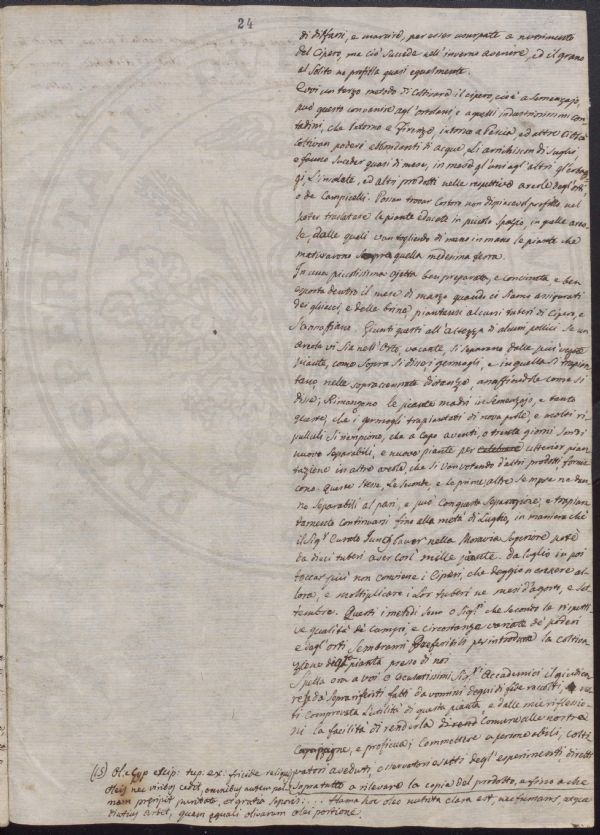 24
di diffarsi, e marcire, per esser usurpate a nutrimento
del Cipero, ma ciò succede nell'inverno avenire, ed il grano
al solito ne profitta quasi egualmente.
Evvi un terzo metodo di coltivare il cipero, cioè a Semenzajo,
può questo convenire agl'ortolani, e a quelli industriosissimi con
tadini, che intorno a Firenze, intorno a Pescia, ed altre Città
coltivan poderi abbondanti di acque. Li arrichiscon di Sughi,
e fanno succeder quasi di mese, in mese gl'uni agl'altri gl'erbag
gi, L'insalate, ed altri prodotti nelle respettive areole degl'orti,
o de Campicelli. Posson trovar costoro non dispiacevol profitto nel
poter traslatare le piante educate in piccolo spazio, in quelle areo
le, dalle quali van togliendo di mano in mano le piante che
maturarono sopra quella medesima gleva.
In una piccolissima ajetta ben preparata, e concimata e ben
esposta dentro il mese di marzo quando ci siamo assicurati
dei ghiacci, e delle brine piantansi alcuni tuberi di Cipero, e
Giunti questi all'altezza di alcuni pollici Se un
areola vi sia nell'Orto, vacante, si separano dalle più
piante, come sopra si disse i germogli, e in quella si trapian
tano, nelle sopracennate distanze, anaffiandole come si
disse; Rimangono le piante madri in Semenzajo, e tanto
queste, che i germogli trapiantati di nova prole, e molti ri
pulluli si riempiono, che a capo a venti, o trenta giorni son di
nuovo separabili, e nuove piante per ulterior pian
tazione in altre areole, che si van votando d'altri prodotti forni
scono. Queste terze, le seconde, e le prime altre sempre ne dan
no separabili al pari, e può con questa separazione, e trapian
tamento continuarsi fino alla metà di Luglio, in maniera chè
il Sigr nella Moravia Superiore potè
da dieci tuberi aver così mille piante. Da luglio in poi
toccar più non conviene i Ciperi, che deggion crescere al
lora, e moltiplicare i Lor tuberi ne mesi d'agosto, e set
tembre. Questi i metodi sono o Sigri che secondo la rispetti
ve qualità de campi, e circostanze variate de poderi
e degl'orti sembranmi preferibili per introdurre la coltiva
zione di q.ta pianta presso di noi
Spetta ora a voi o Sigri Accademici il giudica
re se da sopra riferiti fatti da uomini degni di fede raccolti,
ti comprovata l'utilità di questa pianta, e dalle mie riflessio
ni la facilità di renderla comune alle nostre
campagne, e proficua; Commettere a persone abili, colti
vatori aveduti, osservatori esatti degl'esperimenti diretti
sopratutto a rilevare la copia del prodotto, a fino a che
(15) Ol. Cyp.
oleis nec viribus cedit, omnibus autem
puritate, et gratia saporis: .... flama hoc oleo nutrita clara est, nec fumans
quam equali olivarum olei portione.